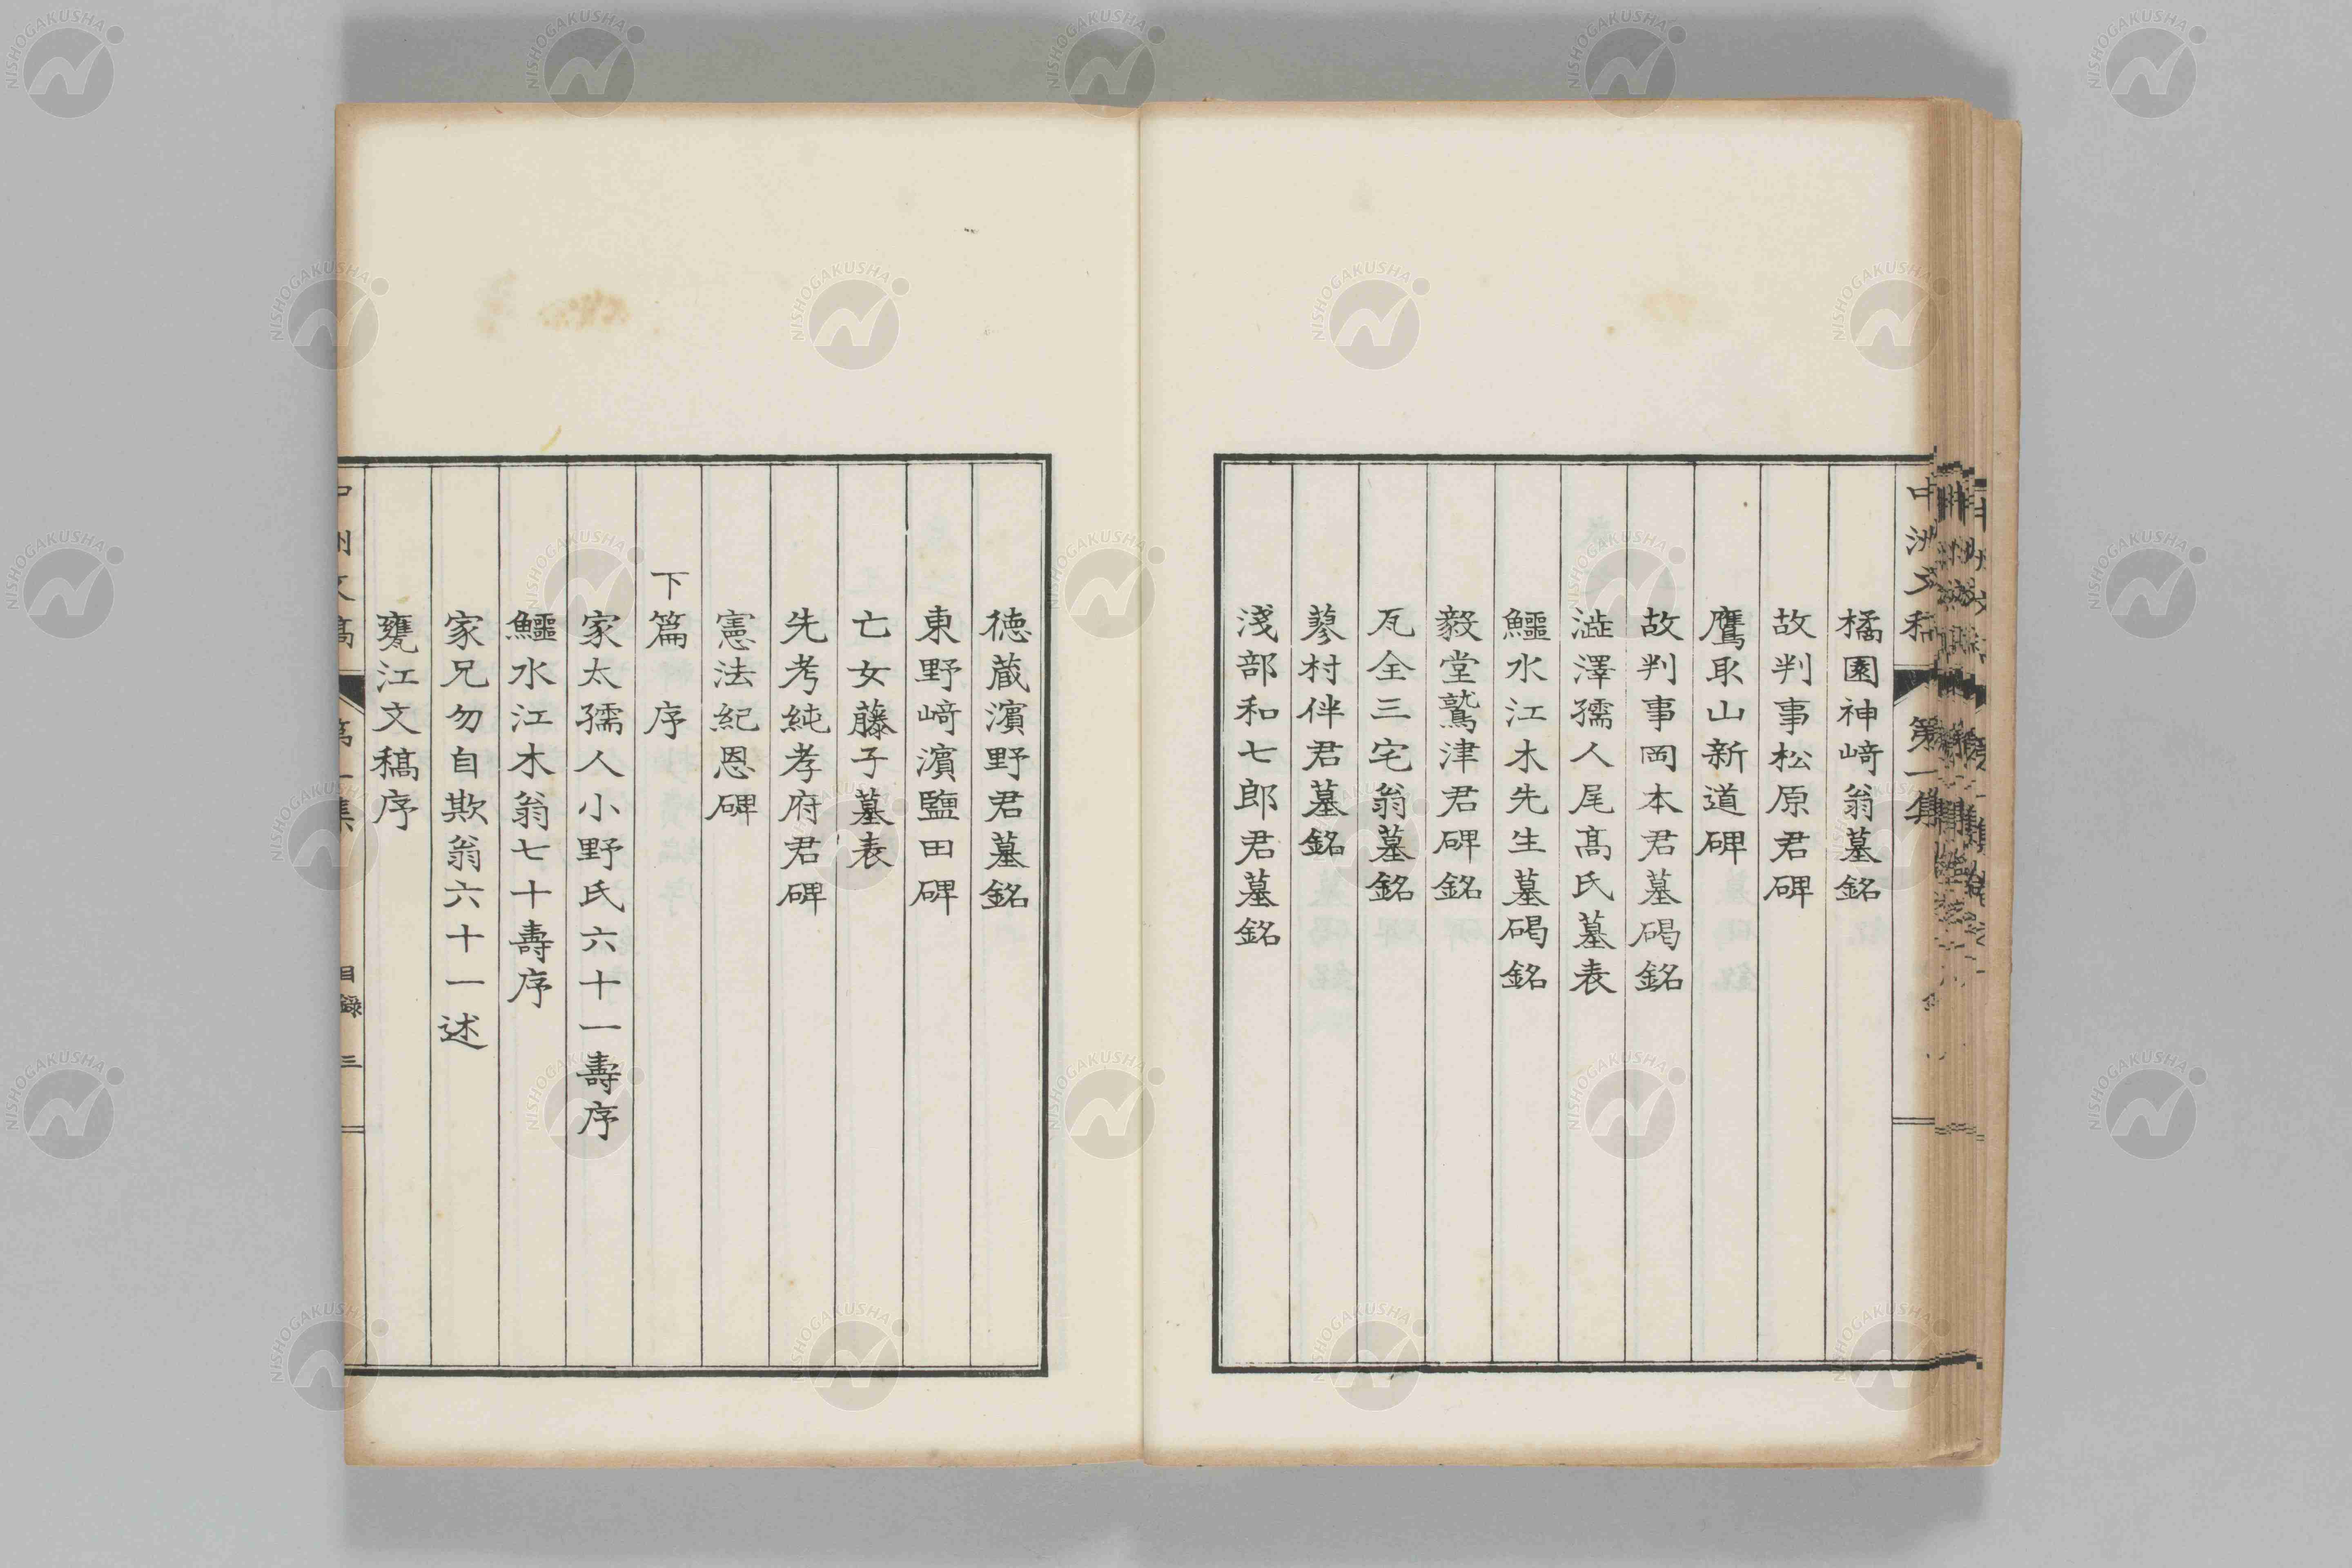 中洲文稿 第一集
橘園神﨑翁墓銘
故判事松原君碑
鷹取山新道碑
故判事岡本君墓碣銘
澁澤孺人尾髙氏墓表
鱷水江木先生墓碣銘
毅堂鷲津君碑銘
瓦全三宅翁墓銘
蓼村伴君墓銘
淺部和七郎君墓銘
徳蔵濱野君墓銘
東野﨑濱鹽田碑
亡女藤子墓表
先考純孝府君碑
憲法紀恩碑
下篇 序
家太孺人小野氏六十一壽序
鱷水江木翁七十壽序
家兄勿自欺翁六十一述
甕江文稿序
中洲文稿 第一集 目錄 三
NISHOGAKUSHA